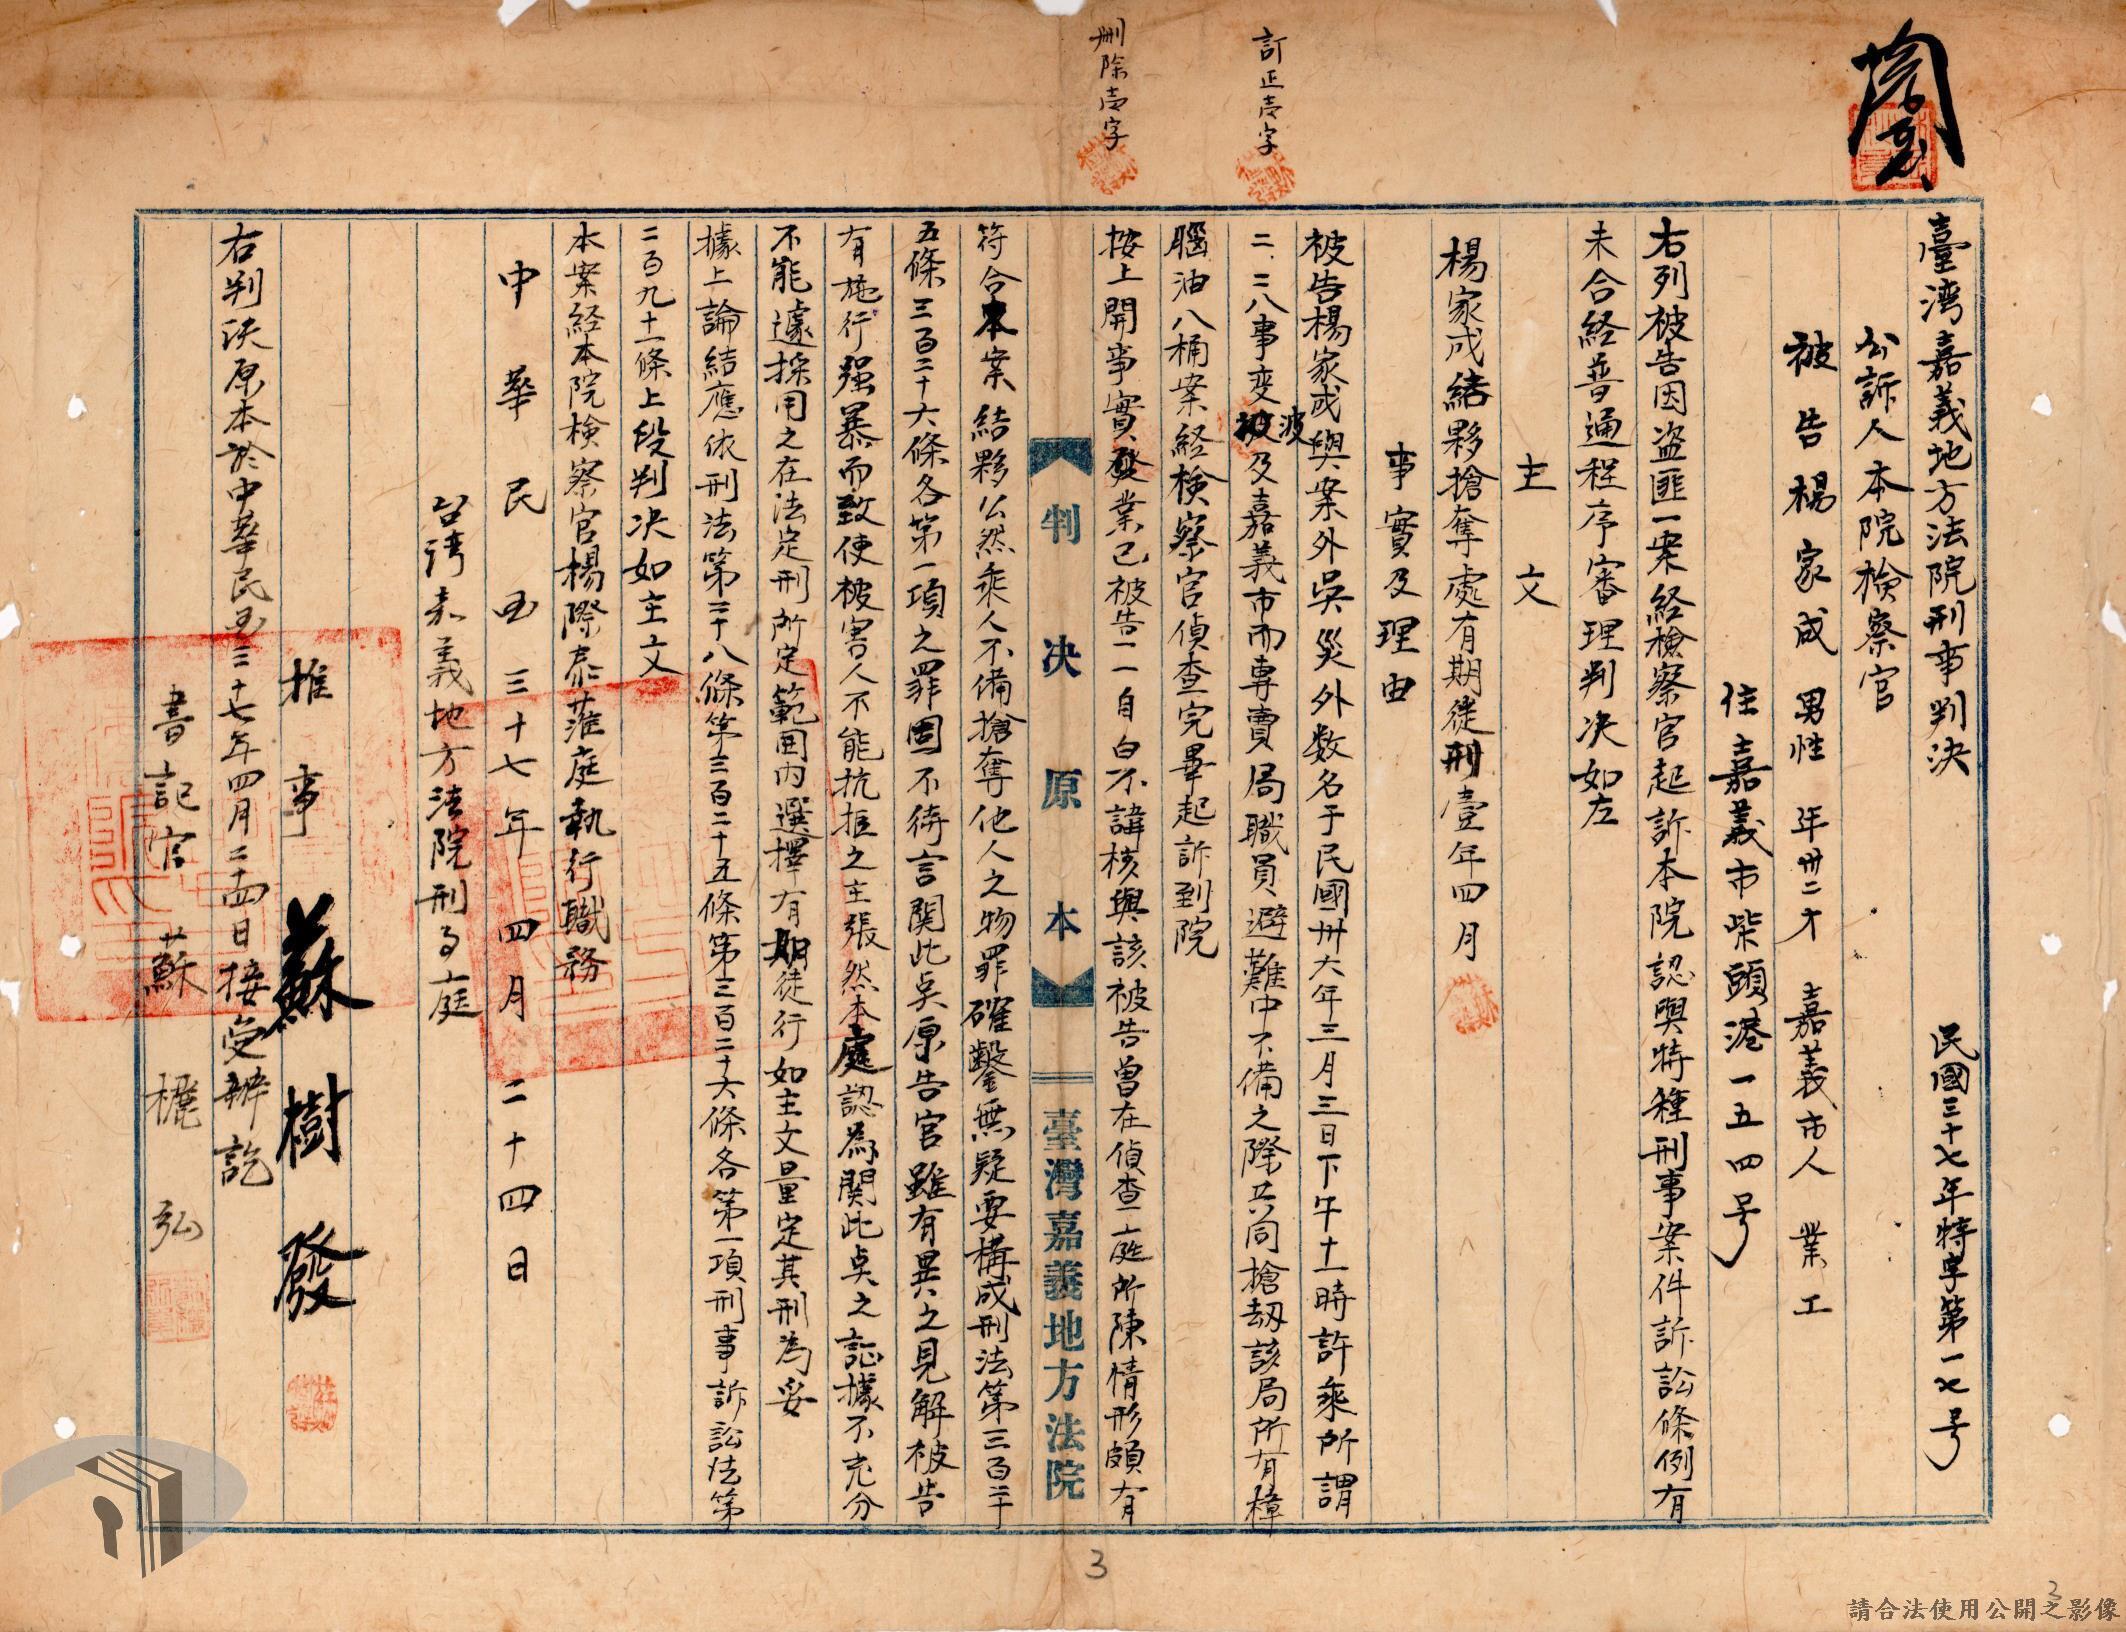 訂正壹字
刪除壹字
臺湾嘉義地方法院刑事判決
民國三十七年特字第一七号
公訴人本院検察官
被告楊家成 男性 年卅二才 嘉義市人 業工
住嘉義市柴頭港一五四号
右列被告因盗匪一案経検察官起訴本院認與特種刑事案件訴訟條例有
未合経普通程序審理判决如左
主文
楊家成結夥搶奪處有期徒刑壹年四月
事實及理由
被告楊家成與案外吳災外数名于民國卅六年三月三日下午十一時許乘所謂
二.二八事变波及嘉義市而專賣局職員避難中不備之際共同搶劫該局所有樟
腦油八桶案経検察官偵查完畢起訴到院
按上開事實業已被告一一自白不諱核與該被告曾在偵查庭所陳情形頗有
判决原本
臺灣嘉義地方法院
符合本案結夥公然乘人不備搶奪他人之物罪確鑿無疑要構成刑法第三百二十
五條三百二十六條各第一項之罪固不待言関此奌原告官雖有異之見解被告
有施行强暴而致使被害人不能抗拒之主張然本處認為関此奌之証據不充分
不能遽採用之在法定刑所定範囲内選擇有期徒行如主文量定其刑為妥
據上論結應依刑法第三十八條第三百二十五條第三百二十六條各第一項刑事訴訟法第
二百九十一條上段判决如主文
本案経本院検察官楊際泰蒞庭執行職務
中華民国三十七年四月二十四日
台湾嘉義地方法院刑事庭
推事 蘇樹發
右判決原本於中華民国三十七年四月二十四日接受辦訖
書記官 蘇 弘
3
3
請合法使用公開之影像